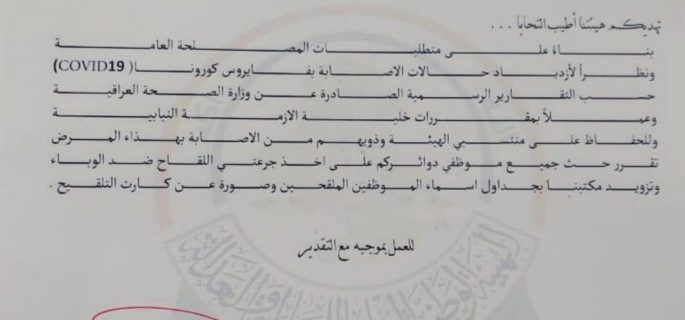 تهديكم هيئتنا أطيب التحايا . . .
بناءً على متطلبات المصلحة العامة
ونظراً لأزدياد حالات الاصابة بفايروس كورونا( COVID19)
حسب التقارير الرسمية الصادرة عن وزارة الصحة العراقية
وعملاً بمقررات خلية الازمة النيابية
وللحفاظ على منتسبي الهيئة وذويهم من الاصابة بهذاء المرض
تقرر حث جميع موظفي دوائركم على اخذ جرعتي اللقاح ضد الوباء
وتزويد مكتبنا بجداول اسماء الموظفين الملقحين وصورة عن كارت التلقيح .
للعمل بموجبه مع التقدير